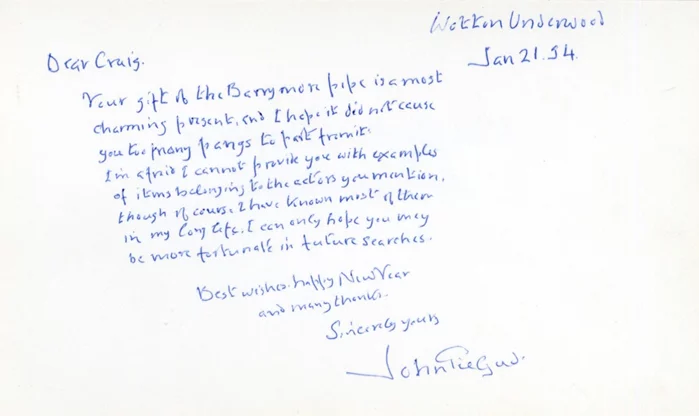 Wotton Underwood
Jan 21. 94.
Dear Craig.
Your gift of the Barrymore pipe is a most
charming present, and I hope it did not cause
you too many pangs to part from it.
I'm afraid I cannot provide you with examples
of items belonging to the actors you mention,
though of course I have known most of them
in my long life. I can only hope you may
be more fortunate in future searches.
Best wishes. happy New Year
and many thanks.
Sincerely yours
John Gielgud.